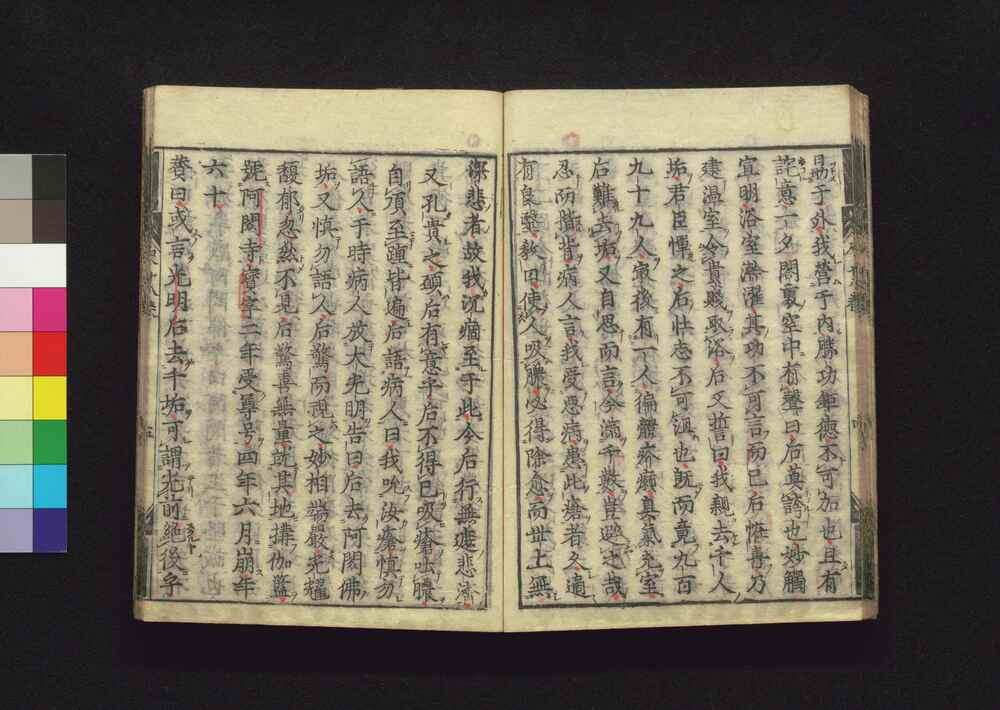 爲于外我營于內勝功鉅德不可加也且有
詫意一夕閤裏空中有聲曰后莫誇也妙觸
宣明浴室澣濯其功不可言而已后恠喜乃
建温室令貴賤取浴后又誓曰我親去千人
垢君臣憚之后快志不可沮也既而竟九百
九十九人最後有一人徧體疥癩臭氣充室
后難去垢又自思而言今滿千數豈避之哉
忍而揩背病人言我受惡病患此瘡者久適
有良醫教曰使人吸膿必得除愈而世上無
深悲者故我沉痼至于此今后行無遮悲濟
又孔貴之願后有意乎后不得已吸瘡吐膿
自頂至踵皆遍后語病人曰我吮汝瘡慎勿
語人于時病人放大光明告曰后去阿閦佛
垢又慎勿語人后驚而視之妙相端嚴光耀
馥郁忽然不見后驚喜無量就其地搆伽藍
號阿閦寺寶字二年受尊号四年六月崩年
六十
贊曰或言光明后去千垢可謂光前絶後乎